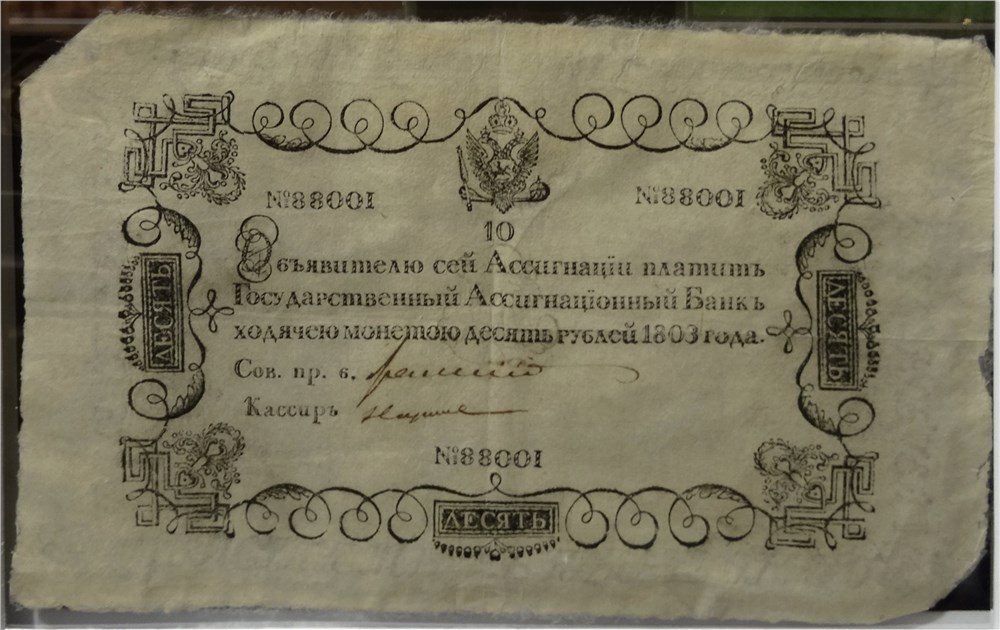 №88001 №88001
10
Объявителю сей Ассигнаціи платитъ
Государственный Ассигнаціонный Банкъ
ходячею монетою десять рублей 1803 года.
Сов. пр. в.
Кассиръ
№88001
ДЕСЯТЬ
ДЕСЯТЬ
ДЕСЯТЬ